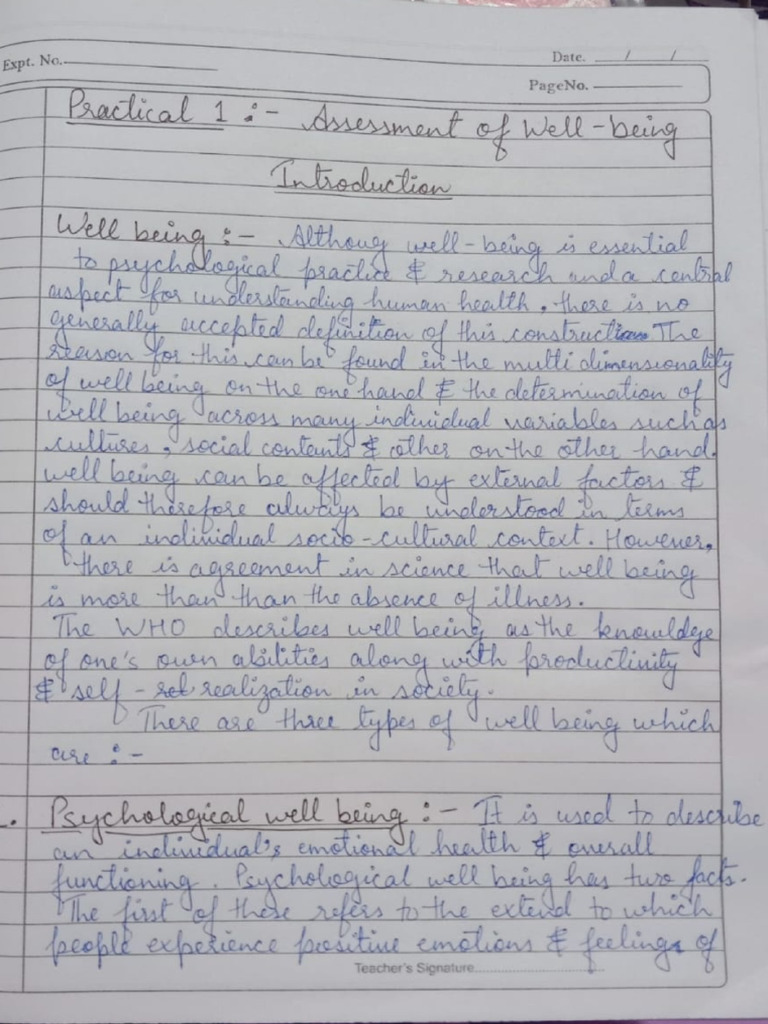 Expt. No.
Date. / /
Page No.
Practical 1 :- Assessment of Well-being
Introduction
Well being :- Althoug well-being is essential
to psychological practice & research and a central
aspect for understanding human health, there is no
generally accepted definition of this construction The
reason for this can be found in the multi dimensionality
of well being on the one hand & the determination of
well being across many individual variables such as
cultures, social contents & other on the other hand.
well being can be affected by external factors &
should therefore always be understood in terms
of an individual socio-cultural context. However,
there is agreement in science that well being
is more than than the absence of illness.
The WHO describes well being as the knowldge
of one's own abilities along with productivity
& self - realization in society.
There are three types of well being which
are :-
Psychological well being :- It is used to describe
an individual's emotional health & overall
functioning. Psychological well being has two facts.
The first of these refers to the extend to which
people experience positive emotions & feelings of
Teacher's Signature